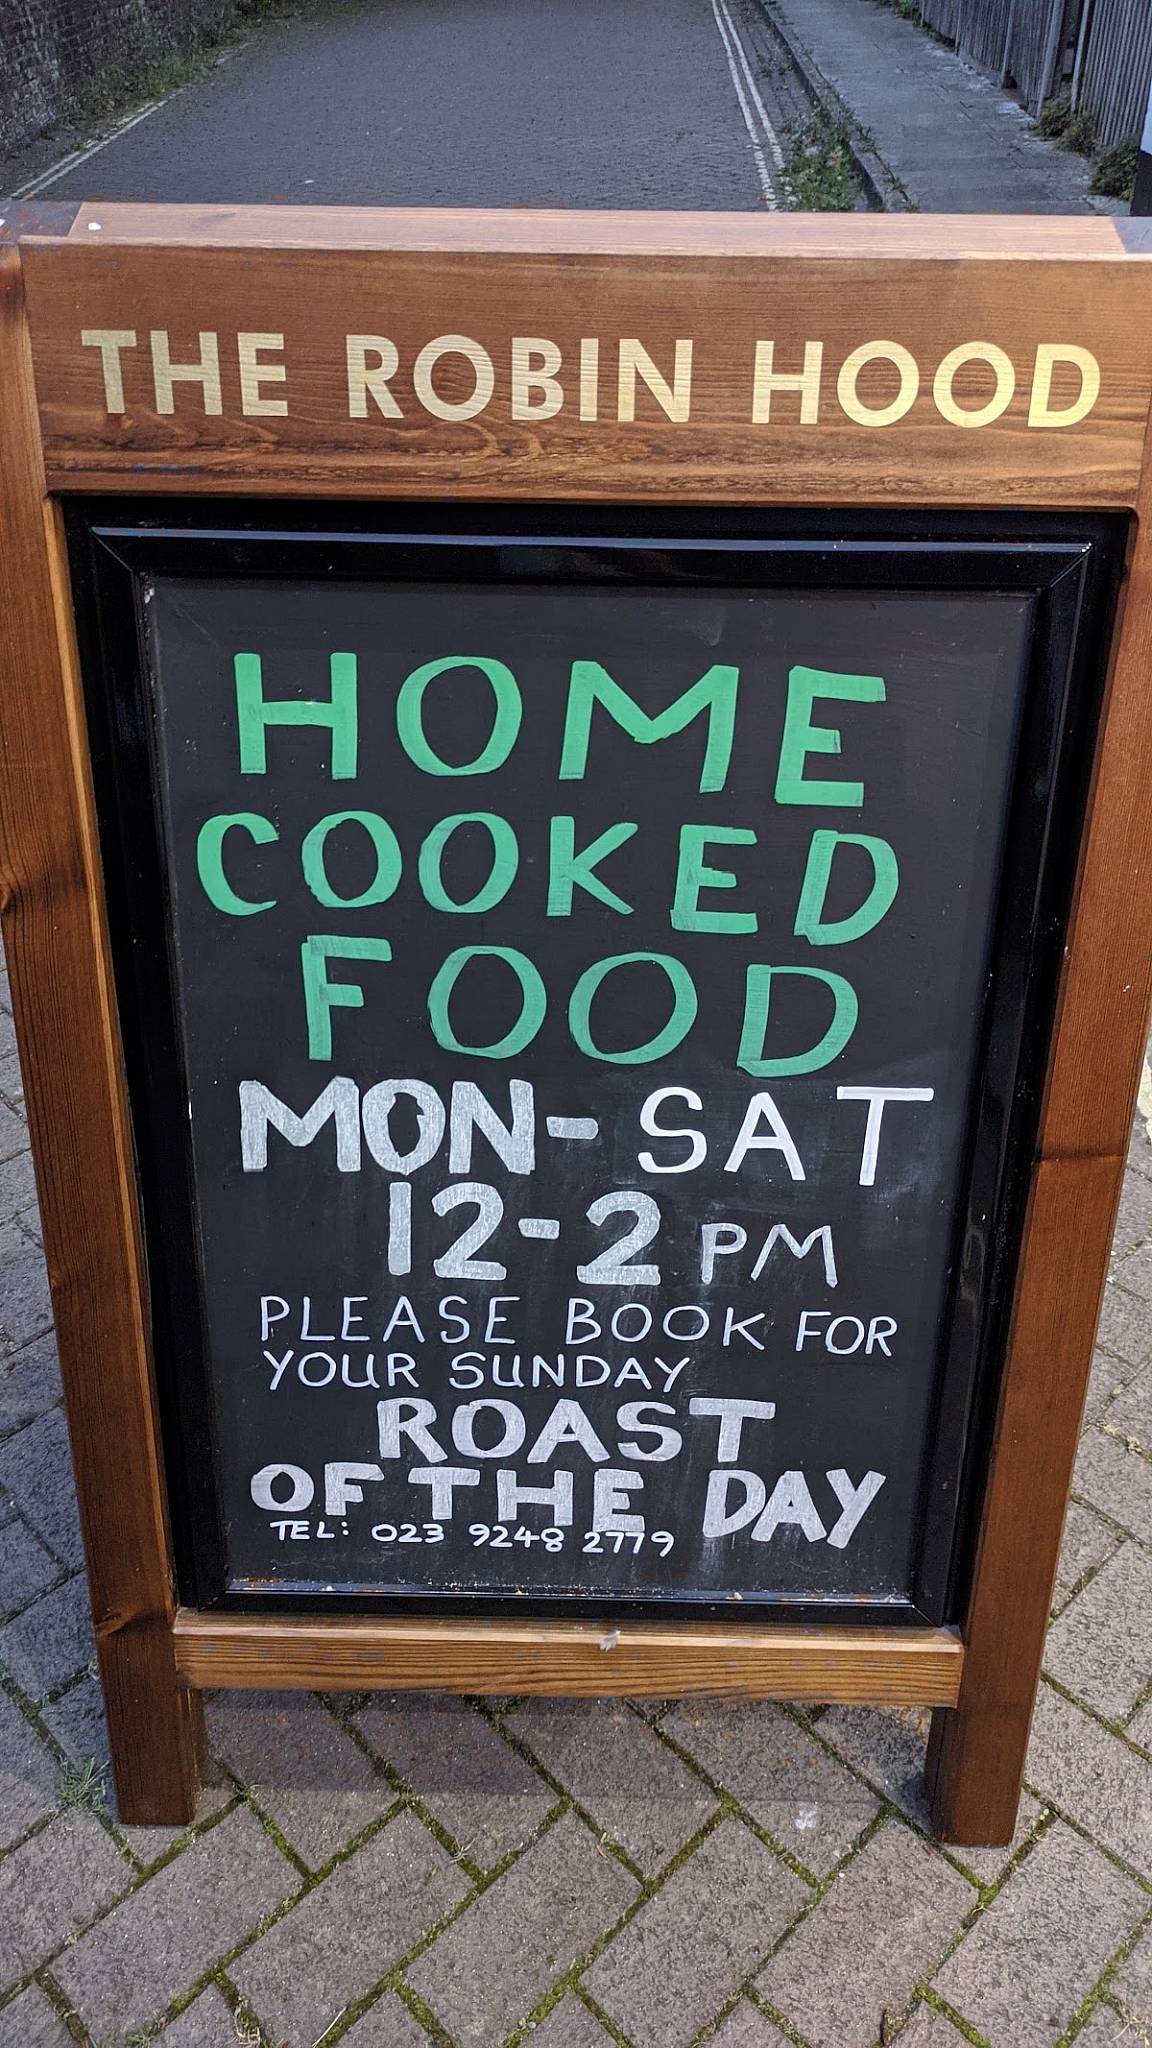 THE ROBIN HOOD
HOME
COOKED
FOOD
MON- SAT
12-2 PM
PLEASE BOOK FOR
YOUR SUNDAY
ROAST
OF THE DAY
TEL: 023 9248 2779